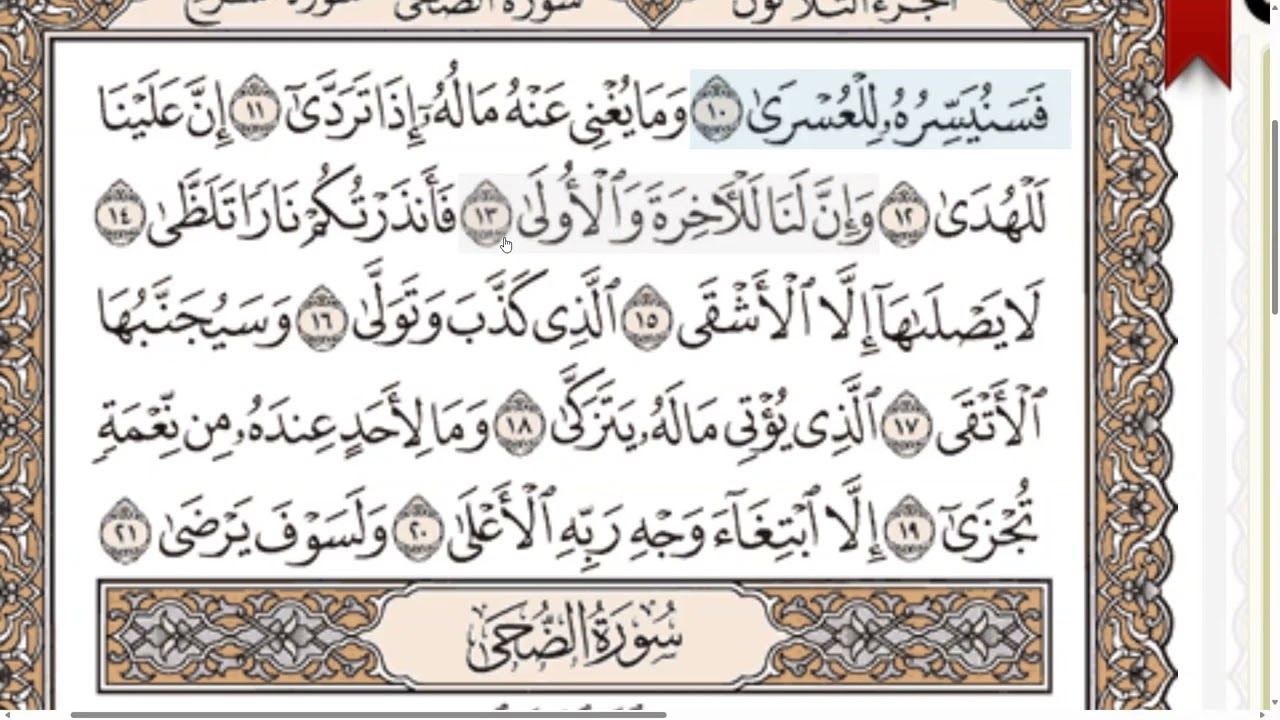 الجزء الثلاثون سورة الضحى سورة الشرح
فَسَنُيَسِّرُهُۥ لِلْعُسْرَىٰ ١٠ وَمَا يُغْنِى عَنْهُ مَالُهُۥٓ إِذَا تَرَدَّىٰٓ ١١ إِنَّ عَلَيْنَا
لَلْهُدَىٰ ١٢ وَإِنَّ لَنَا لَلْـَٔاخِرَةَ وَٱلْأُولَىٰ ١٣ فَأَنذَرْتُكُمْ نَارًا تَلَظَّىٰ ١٤
لَا يَصْلَىٰهَآ إِلَّا ٱلْأَشْقَى ١٥ ٱلَّذِى كَذَّبَ وَتَوَلَّىٰ ١٦ وَسَيُجَنَّبُهَا
ٱلْأَتْقَى ١٧ ٱلَّذِى يُؤْتِى مَالَهُۥ يَتَزَكَّىٰ ١٨ وَمَا لِأَحَدٍ عِندَهُۥ مِن نِّعْمَةٍ
تُجْزَىٰٓ ١٩ إِلَّا ٱبْتِغَآءَ وَجْهِ رَبِّهِ ٱلْأَعْلَىٰ ٢٠ وَلَسَوْفَ يَرْضَىٰ ٢١
سُورَةُ الضُّحَىٰ